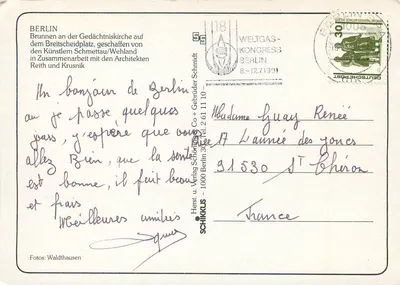 BERLIN
Brunnen an der Gedächtniskirche auf
dem Breitscheidplatz, geschaffen von
den Künstlern Schmettau/Wehland
in Zusammenarbeit mit den Architekten
Reith und Krusnik
Un bonjour de Berlin
ou je passe quelques
jours, j'espère que vous
allez Bien, que la santé
est bonne, il fait beau
et frais
Meilleures amitiés
Fotos: Waldthausen
SCHIKKUS - 1000 Berlin 30, Tel. 2 61 11 10
18
WELTGAS-
KONGRESS
BERLIN
8.-12.7.1991
30
DEUTSCHE POST
Madame Guay Renée
17 L'année des joncs
91530 St Chéron
France